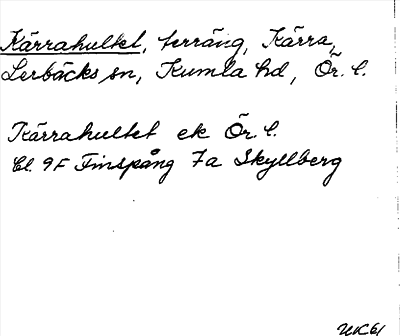 Kärrahultet, terräng, Kärra,
Lerbäcks sn, Kumla hd, Ör. l.
Kärrahultet ek Ör. l.
Bl. 9F Finspång 7a Skyllberg
UK 61